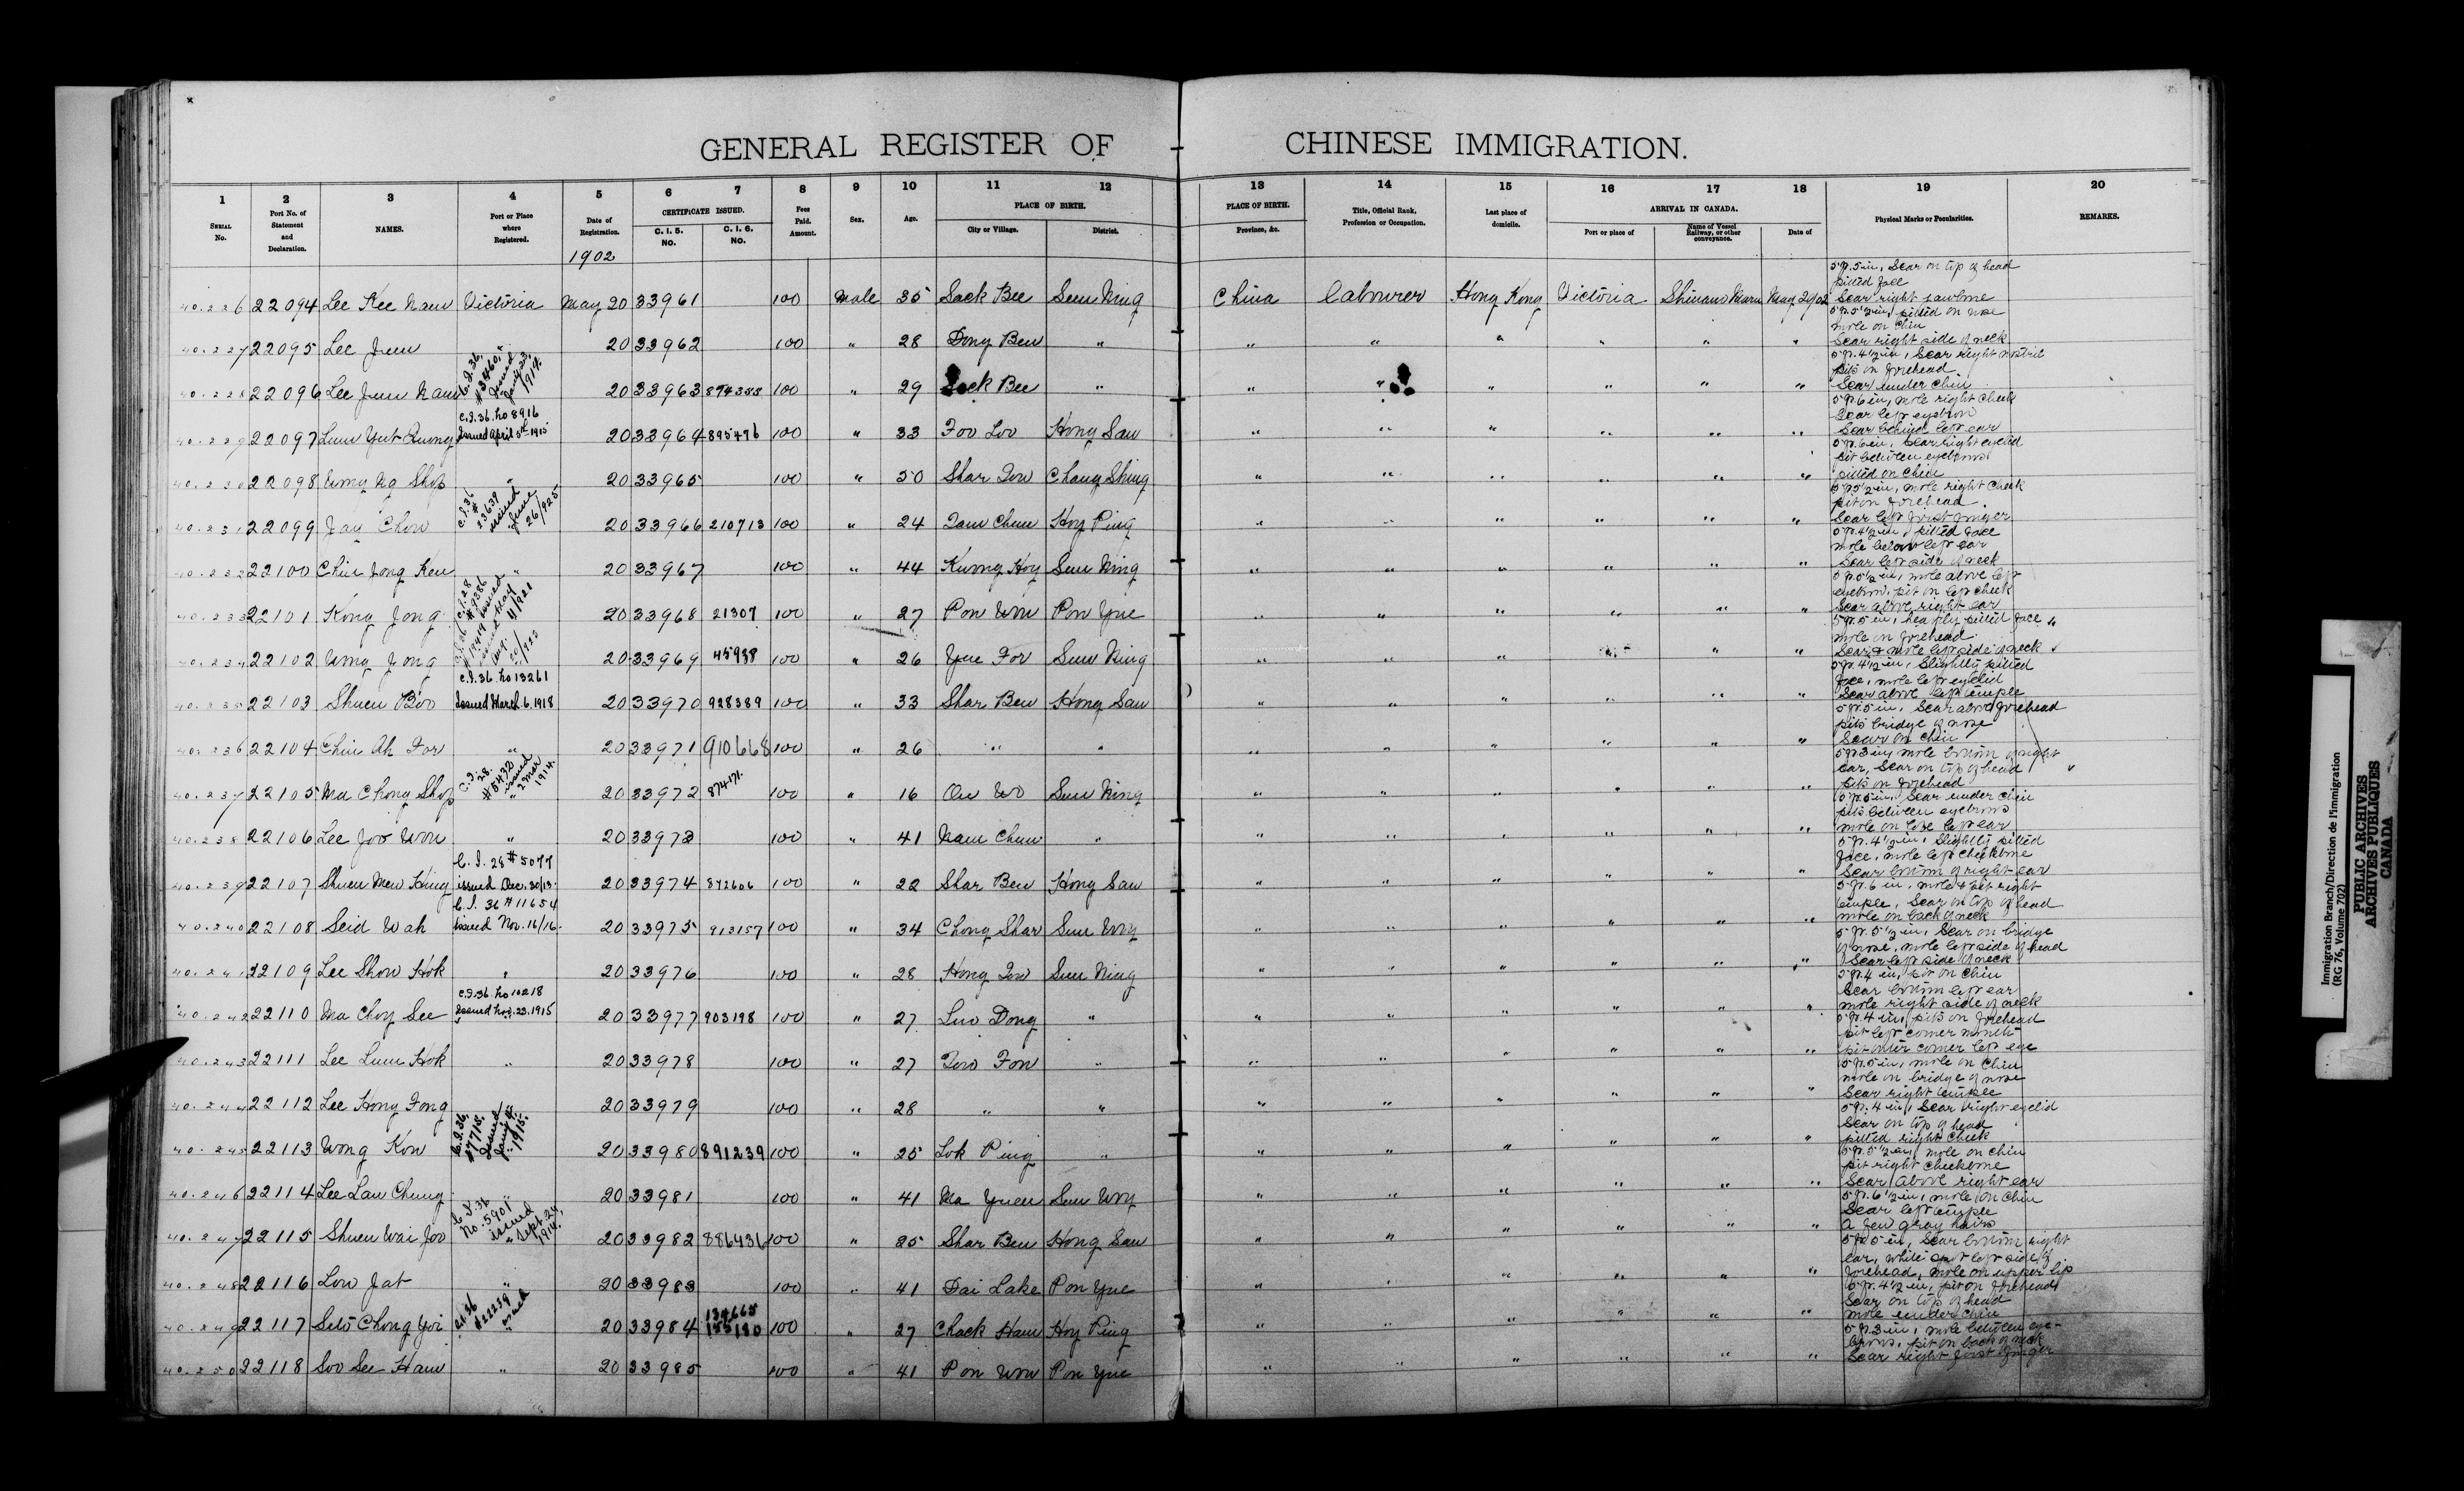 GENERAL REGISTER OF CHINESE IMMIGRATION.
1 2 3 4 5 6 7 8 9 10 11 12 13 14 15 16 17 18 19 20
SERIAL No. Port No. of Statement and Declaration. NAMES. Port or Place where Registered. Date of Registration. CERTIFICATE ISSUED. C. I. 5. NO. C. I. 6. NO. Fees Paid. Amount. Sex. Age. PLACE OF BIRTH. City or Village. District. PLACE OF BIRTH. Province, &c. Title, Official Rank, Profession or Occupation. Last place of domicile. ARRIVAL IN CANADA. Port or place of Name of Vessel Railway, or other conveyance. Date of Physical Marks or Pecularities. REMARKS.
1902
40.226 22094 Lee Kee Nam Victoria May 20 33961 100 Male 35 Sack Bee Sun Ning China Labourer Hong Kong Victoria Shinano Maru May 20/02 5 ft. 5 in, Scar on top of head pitted face Scar right jawbone
40.227 22095 Lee Jum " 20 33962 100 " 28 Dong Ben " " " " " " " 5 ft. 5 1/2 in, pitted on nose mole on chin Scar right side of neck
40.228 22096 Lee Jum Nam 20 33963 100 " 29 Sack Bee " " " " " " " 5 ft. 4 1/2 in, Scar right nostril pits on forehead Scar under chin
40.229 22097 Lum Yut Quong C.I.36. No 8916 Issued April 5th 1915 20 33964 895476 100 " 33 Foo Loo Hong San " " " " " " 5 ft. 6 in, mole right cheek Scar left eyebrow Scar behind left ear
40.230 22098 Wong Ng Shop " 20 33965 100 " 50 Shar Tow Chang Shing " " " " " " 5 ft. 6 in, Scar right eyelid pit between eyebrows pitted on chin
40.231 22099 Jay Chow C.I.36 # 23639 issued June 26/925 20 33966 210713 100 " 24 Tam Chun Hoy Ping " " " " " " 5 ft. 5 1/2 in, mole right cheek pit on forehead Scar left first finger
40.232 22100 Chin Jong Ken " 20 33967 100 " 44 Kwong Hoy Sun Ning " " " " " " 5 ft. 4 1/2 in, pitted face mole below left ear Scar left side of neck
40.233 22101 Kong Jong 20 33968 21307 100 " 27 Pon Won Pon Yue " " " " " " mole above left eyebrow, pit on left cheek Scar above right ear
40.234 22102 Wong Jong 20 33969 45938 100 " 26 Yue For Sun Ning " " " " " " 5 ft. 5 in, heavily pitted face mole on forehead Scar & mole left side of neck
40.235 22103 Shuen Boo C.I.36. No 13261 Issued March 6. 1918 20 33970 928389 100 " 33 Shar Ben Hong San " " " " " " 5 ft. 4 1/2 in, Slightly pitted face, mole left eyelid Scar above left temple
40.236 22104 Chin Ah For " 20 33971 910668 100 " 26 " " " " " " " " 5 ft. 5 in, Scar above forehead pits bridge of nose Scar on chin
40.237 22105 Ma Chong Shop C.I. 28. #5432 issued 2 Mar 1914. 20 33972 87471. 100 " 16 On Wo Sun Ning " " " " " " 5 ft. 3 in, mole bottom of right ear, Scar on top of head pits on forehead
40.238 22106 Lee Joo Won " 20 33973 100 " 41 Nam Chun " " " " " " " Scar under chin pits between eyebrows mole on lobe left ear
40.239 22107 Shuen Mew Hing C. I. 28 # 5077 issued Dec. 30/13. 20 33974 872606 100 " 22 Shar Ben Hong San " " " " " " 5 ft. 4 1/2 in, Slightly pitted face, mole left cheekbone Scar bottom of right ear
40.240 22108 Seid Wah C. I. 36 # 11654 issued Nov. 16/16. 20 33975 913157 100 " 34 Chong Shar Sun Woy " " " " " " 5 ft. 6 in, mole & pit right temple, Scar on top of head mole on back of neck
40.241 22109 Lee Show Hok " 20 33976 100 " 28 Hong Tow Sun Ning " " " " " " 5 ft. 5 1/2 in, Scar on bridge of nose, mole left side of head Scar left side of neck
40.242 22110 Ma Choy See C.I.36. No 10218 Issued Nov. 23. 1915 20 33977 903198 100 " 27 Luo Dong " " " " " " " 5 ft. 4 in, pit on chin Scar bottom left ear mole right side of neck
40.243 22111 Lee Lum Hok " 20 33978 100 " 27 Tow Fon " " " " " " " 5 ft. 4 in, pits on forehead pit left corner mouth pit outer corner left eye
40.244 22112 Lee Hong Fong " 20 33979 100 " 28 " " " " " " " " 5 ft. 5 in, mole on chin mole on bridge of nose Scar right temple
40.245 22113 Wong Kow C.I.36. #7715. Issued Jany 4. 1915. 20 33980 891239 100 " 25 Lok Ping " " " " " " " 5 ft. 4 in, Scar right eyelid Scar on top of head pitted right cheek
40.246 22114 Lee Lan Chung " 20 33981 100 " 41 Ma Yuen Sun Woy " " " " " " 5 ft. 5 1/2 in, mole on chin pit right cheekbone Scar above right ear
40.247 22115 Shuen Wai Joo C.I.36 No. 5901 issued Sept. 24, 1914. 20 33982 886436 100 " 25 Shar Ben Hong San " " " " " " 5 ft. 6 1/2 in, mole on chin Scar left temple A few gray hairs
40.248 22116 Low Jat " 20 33983 100 " 41 Dai Lake Pon Yue " " " " " " 5 ft. 5 in, Scar bottom right ear, white spot left side of forehead, mole on upper lip
40.249 22117 Seto Chong Yoi 20 33984 100 " 27 Chack Ham Hoy Ping " " " " " " 5 ft. 4 1/2 in, pit on forehead Scar on top of head mole under chin
40.250 22118 Soo See Ham " 20 33985 100 " 41 Pon Won Pon Yue " " " " " " 5 ft. 3 in, mole between eyebrows, pit on back of neck Scar right first finger
Immigration Branch/Direction de l'immigration
(RG 76, Volume 702)
PUBLIC ARCHIVES
ARCHIVES PUBLIQUES
CANADA